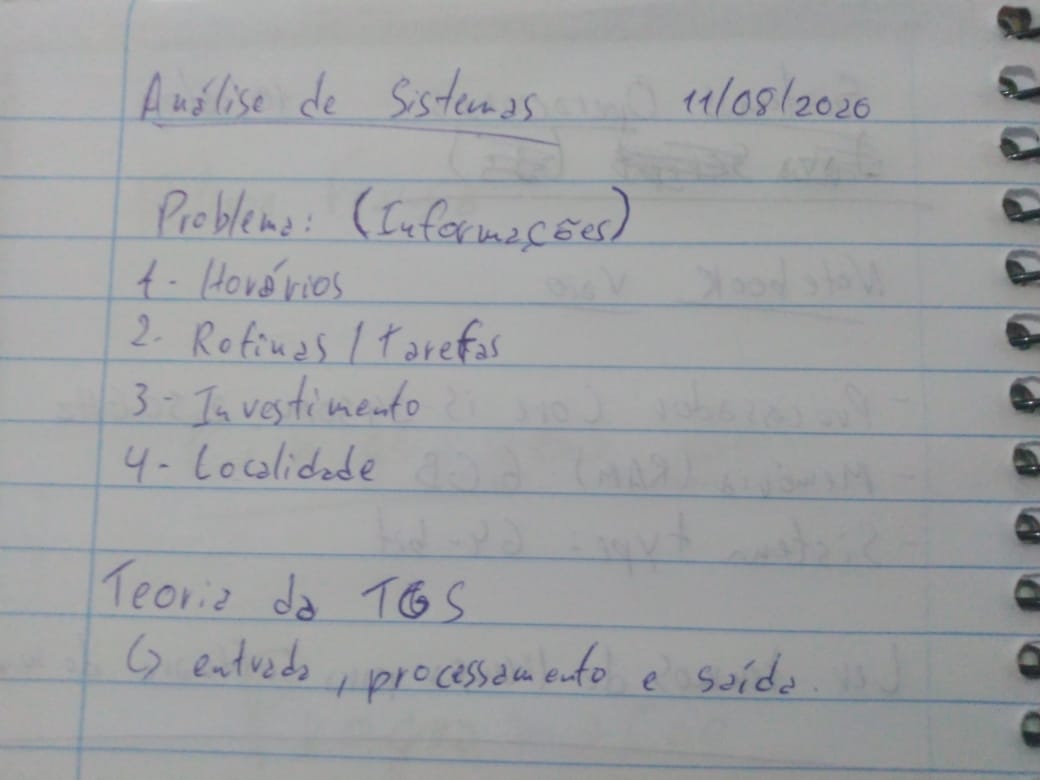 Análise de Sistemas 11/08/2020
Problema: (Informações)
1- Horários
2- Rotinas / tarefas
3- Investimento
4- Localidade
Teoria da TGS
↳ entrada, processamento e saída.